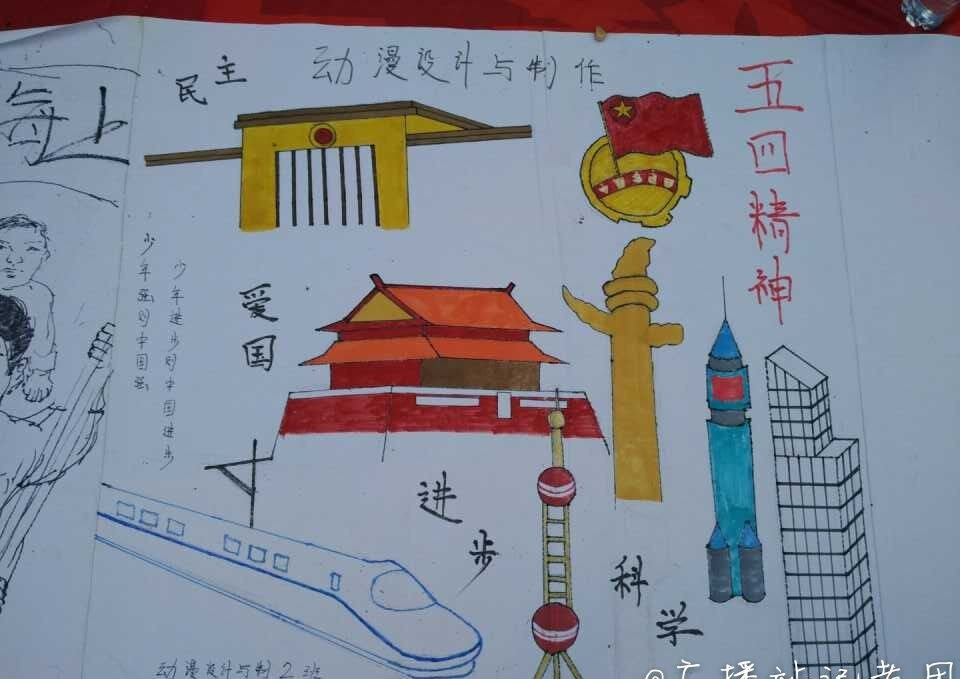 每上
民主
动漫设计与制作
五四精神
少年强则中国强
少年进步则中国进步
爱国
进步
科学
动漫设计与制2班
@广播站记者团